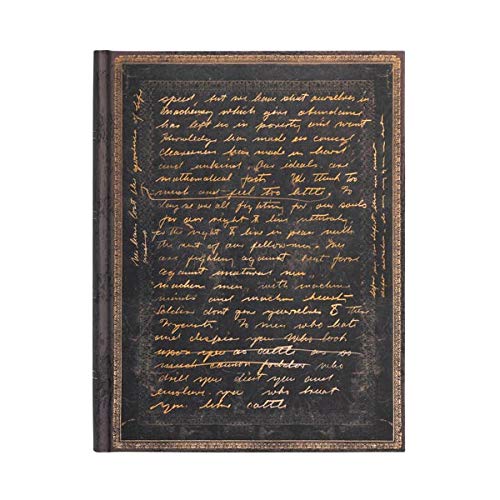 We have lost the
speed but we have shut ourselves in
Machinery which gives abundance
has left us in poverty and want
Knowledge has made us
has made us hard
and unkind Our ideals are
mathematical facts We think too
much and feel too little. To
day we are all fighting for our souls
for our right to live naturally
for the right to live in peace with
the rest of our fellowmen. You
are fighting against brut force
against unatural men,
machine men, with machine
minds and machine hearts
Soldiers dont give yourselves to
To men who hate
and despise you who look
upon you as cattle
cannon fodder who
drill you diet you and
enslave you who treat
you like cattle